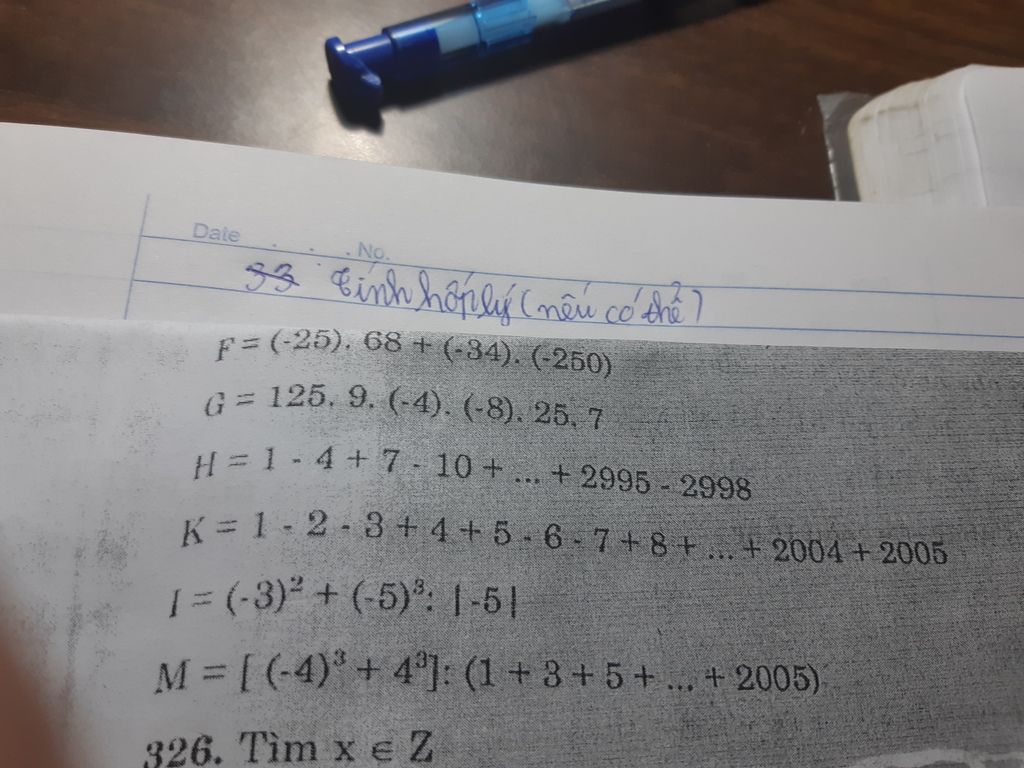 Date . . . No.
Tính hợp lý (nếu có thể)
F = (-25). 68 + (-34). (-250)
G = 125. 9. (-4). (-8). 25. 7
H = 1 - 4 + 7 - 10 + ... + 2995 - 2998
K = 1 - 2 - 3 + 4 + 5 - 6 - 7 + 8 + ... + 2004 + 2005
I = (-3)² + (-5)³: |-5|
M = [ (-4)³ + 4³]: (1 + 3 + 5 + ... + 2005)
326. Tìm x ∈ Z